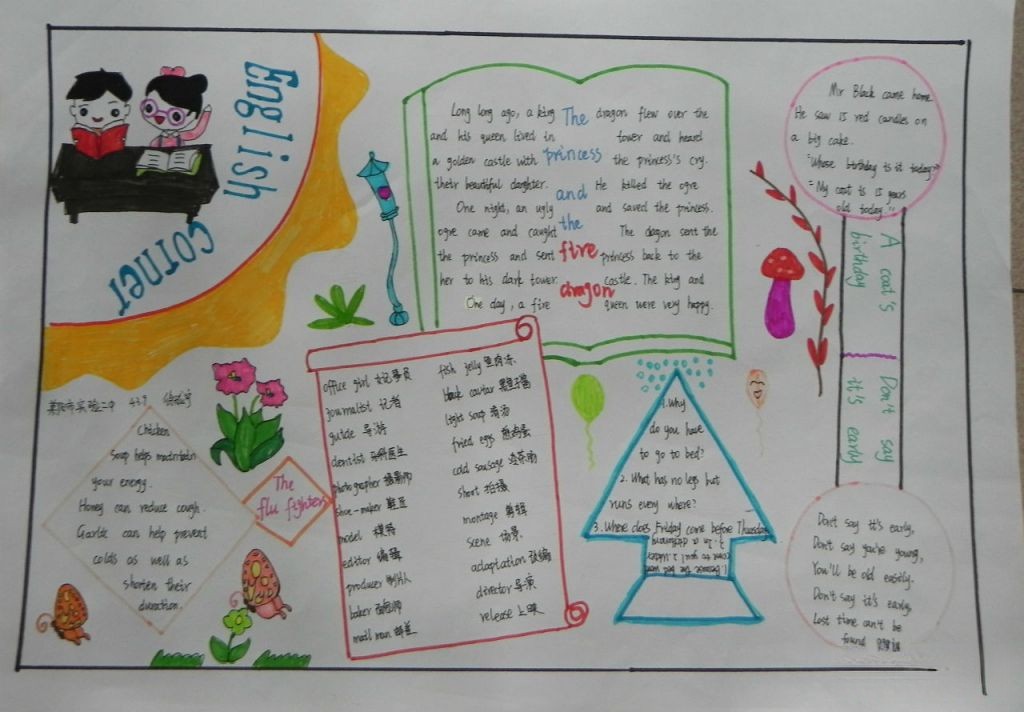 English
corner
Long long ago, a king
and his queen lived in
a golden castle with
their beautiful daughter.
One night, an ugly
ogre came and caught
the princess and sent
her to his dark tower.
One day, a fire
The
princess
and
the
fire
dragon
dragon flew over the
tower and heard
the princess's cry.
He killed the ogre
and saved the princess.
The dagon sent the
princess back to the
castle. The king and
queen were very happy.
Mr Black came home.
He saw 15 red candles on
a big cake.
"Whose birthday is it today?"
"My coat is 15 years
old today."
A coat's
birthday
Don't say
it's early
Don't say it's early,
Don't say you're young,
You'll be old easily.
Don't say it's early,
Lost time can't be
found
市实验二中
Chicken
soup helps maintain
your energy.
Honey can reduce cough.
Garlic can help prevent
colds as well as
shorten their
duration.
The
flu fighters
office girl 女记事员
journalist 记者
guide 导游
dentist 牙科医生
photographer 摄影师
shoe-maker 鞋匠
model 模特
editor 编辑
producer 制片人
baker 面包师
mail man 邮差
fish jelly 鱼肉冻
black caviar 黑鱼子酱
light soup 清汤
fried eggs 煎鸡蛋
cold sausage
shoot 拍摄
montage 剪辑
scene 场景
adaptation 改编
director 导演
release 上映
1. Why
do you have
to go to bed?
2. What has no legs but
runs every where?
3. Where does Friday come before Thursday
1. Because the bed won't
come to you! 2. Water
3. In a dictionary